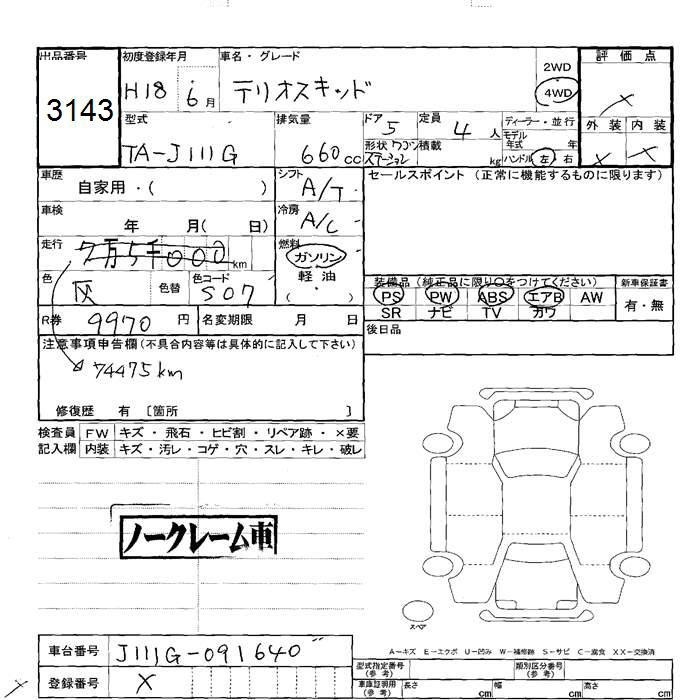 出品番号 初度登録年月 車名・グレード 評価点
3143 H18 6月 テリオスキッド 2WD 4WD ×
型式 排気量 ドア 定員 ディーラー・並行 外装 内装
TA-J111G 660cc 5 4人 モデル年式 年 × ×
形状 ワゴン ステーション 積載 kg ハンドル 左 右
車歴 自家用・( ) シフト A/T セールスポイント (正常に機能するものに限ります)
車検 年 月( 日) 冷房 A/C
走行 7万5千000km 燃料 ガソリン 軽油・( )
色 灰 色替 色コード S07
装備品 (純正品に限り○をつけてください) 新車保証書
PS PW ABS エアB AW 有・無
SR ナビ TV カワ
R券 9970円 名変期限 月 日 後日品
注意事項申告欄(不具合内容等は具体的に記入して下さい)
74475km
修復歴 有 [箇所 ]
検査員 FW キズ・飛石・ヒビ割・リペア跡・×要
記入欄 内装 キズ・汚レ・コゲ・穴・スレ・キレ・破レ
ノークレーム車
スペア
A-キズ E-エクボ U-凹み W-補修跡 S-サビ C-腐食 XX-交換済
車台番号 J111G-091640
型式指定番号(参考) 類別区分番号(参考)
登録番号 ×
車庫証明用(参考) 長さ cm 幅 cm 高さ cm
×